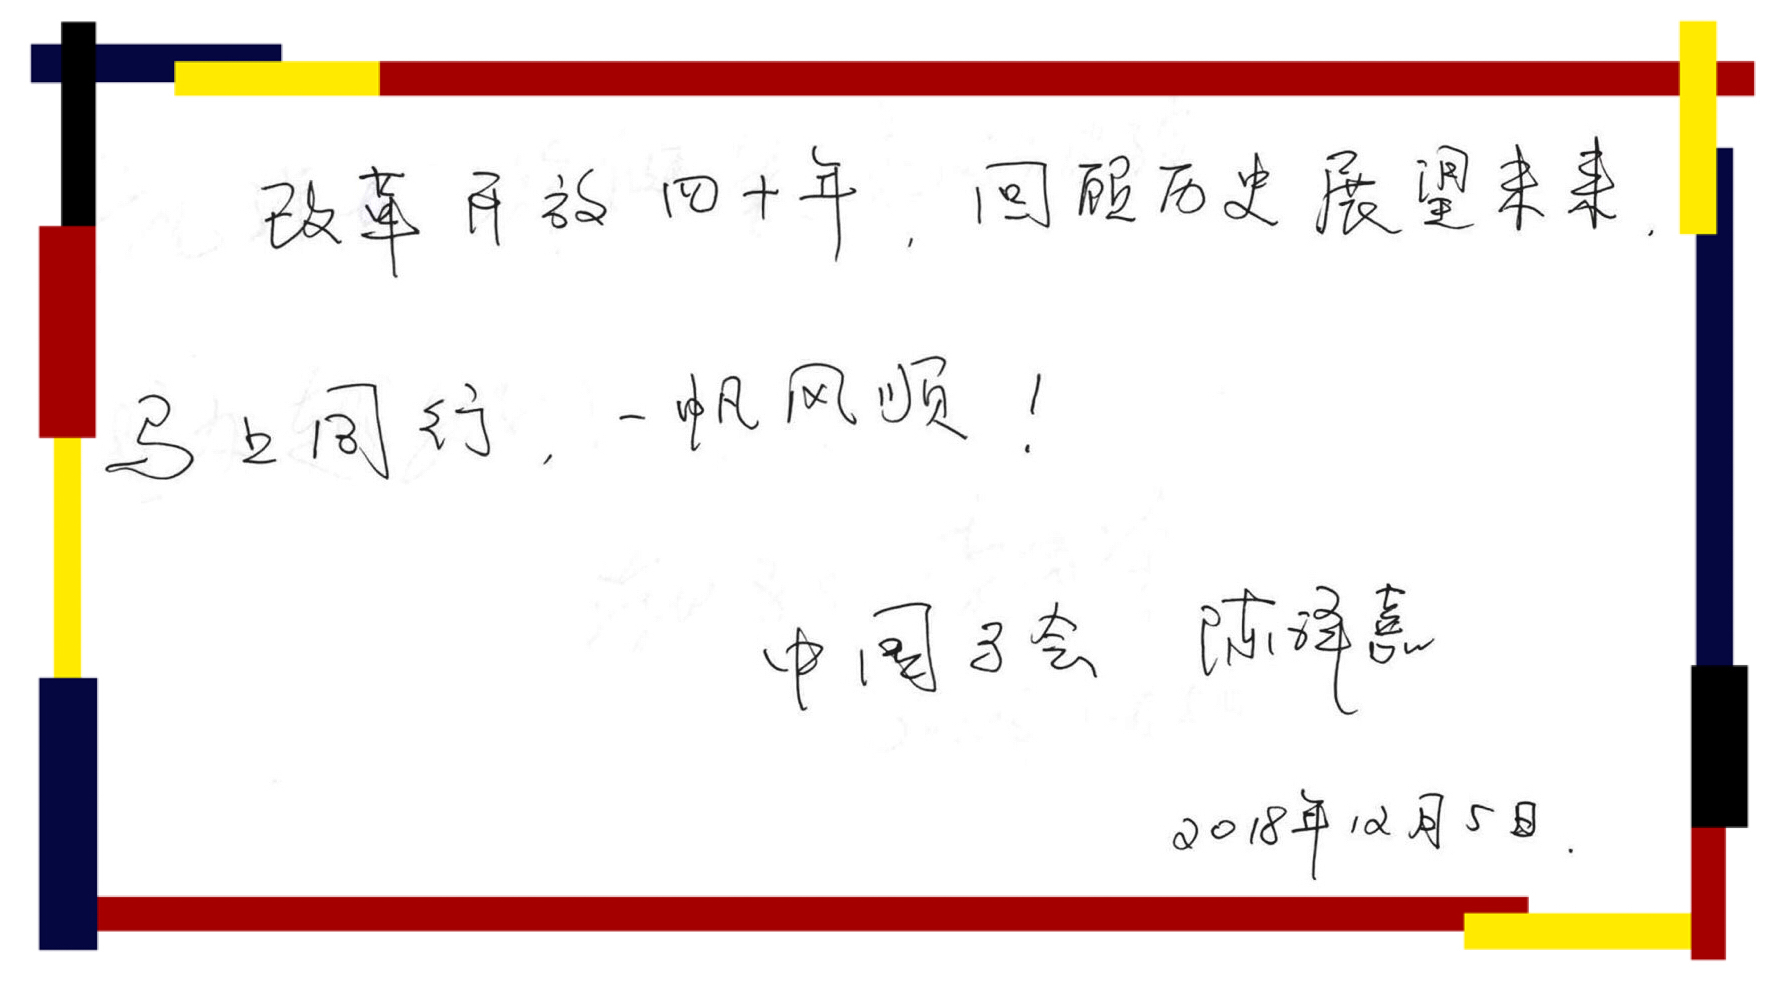 改革开放四十年，回顾历史展望未来，
马上同行，一帆风顺！
中国马会 陈泽嘉
2018年12月5日.